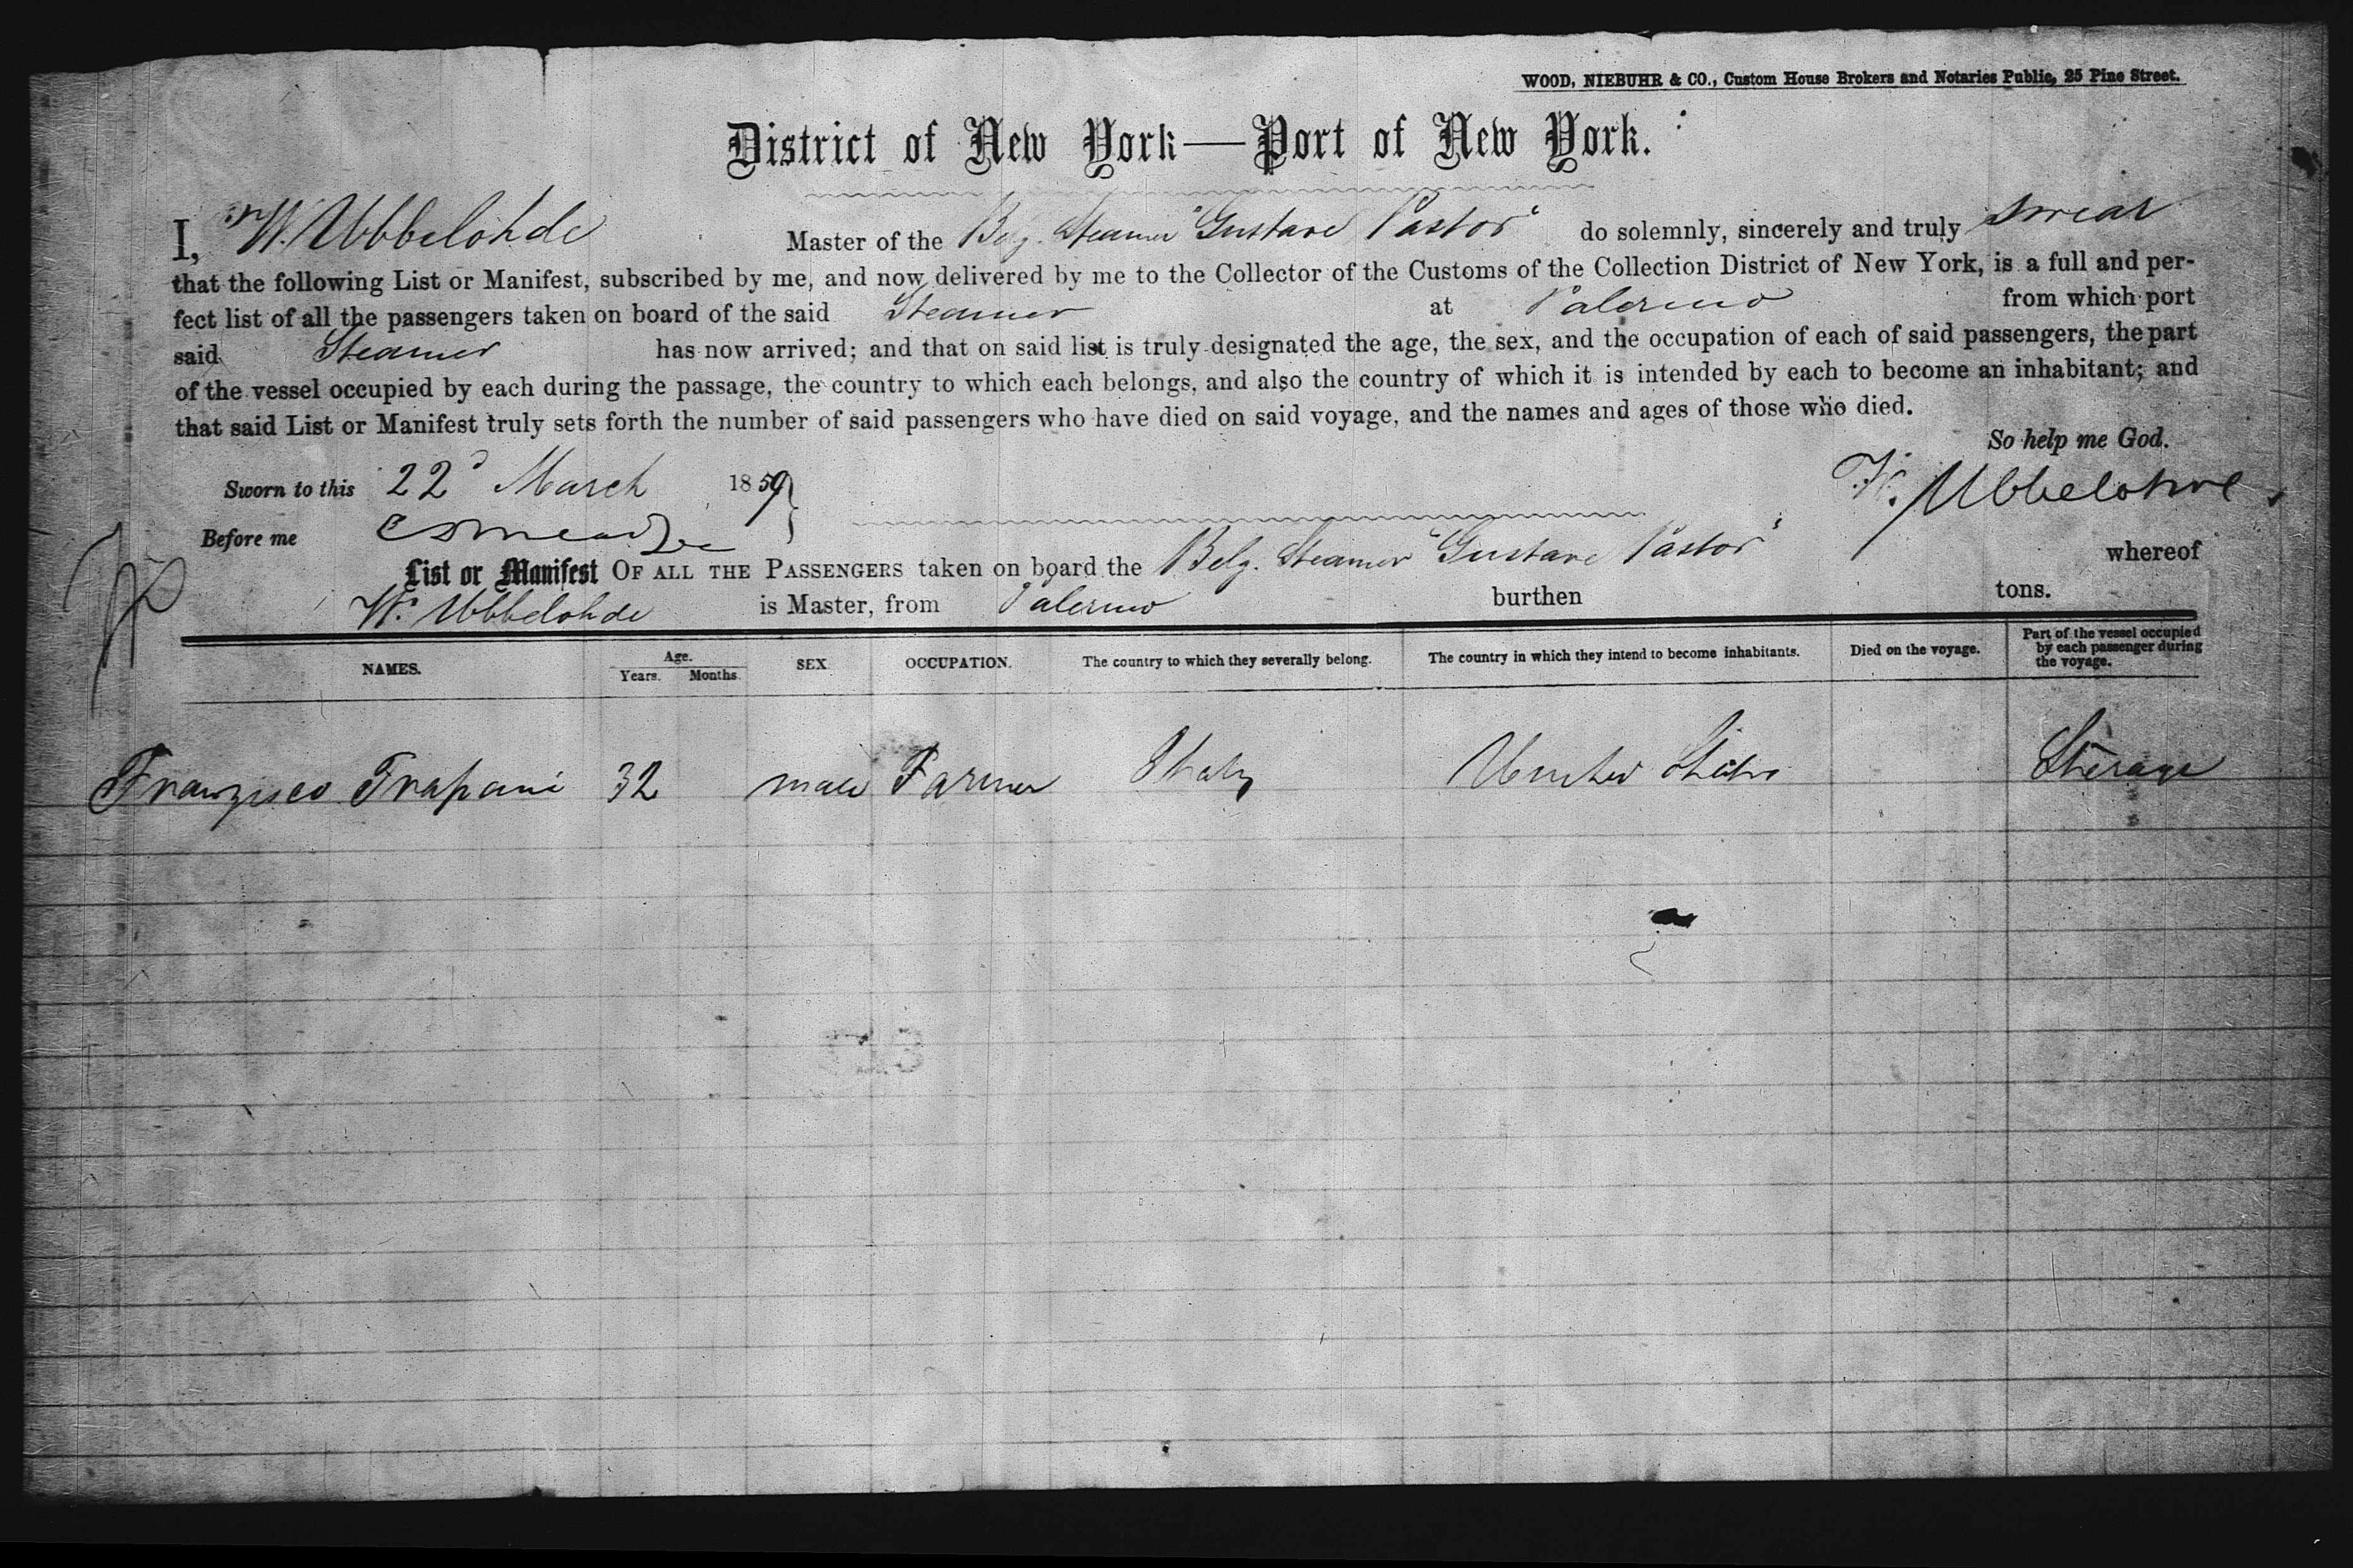 WOOD, NIEBUHR & CO., Custom House Brokers and Notaries Public, 25 Pine Street.
District of New York—Port of New York.
I, W. Ubbelohde Master of the Belg. Steamer "Gustave Pastor" do solemnly, sincerely and truly swear
that the following List or Manifest, subscribed by me, and now delivered by me to the Collector of the Customs of the Collection District of New York, is a full and per-
fect list of all the passengers taken on board of the said Steamer at Palermo from which port
said Steamer has now arrived; and that on said list is truly designated the age, the sex, and the occupation of each of said passengers, the part
of the vessel occupied by each during the passage, the country to which each belongs, and also the country of which it is intended by each to become an inhabitant; and
that said List or Manifest truly sets forth the number of said passengers who have died on said voyage, and the names and ages of those who died.
So help me God.
Sworn to this 22d March 1859
W. Ubbelohde
Before me
List or Manifest OF ALL THE PASSENGERS taken on board the Belg. Steamer "Gustave Pastor" whereof
W. Ubbelohde is Master, from Palermo burthen tons.
NAMES. Age. Years. Months. SEX OCCUPATION. The country to which they severally belong. The country in which they intend to become inhabitants. Died on the voyage. Part of the vessel occupied by each passenger during the voyage.
Franzisco Trapani 32 male Farmer Italy United States Sterage